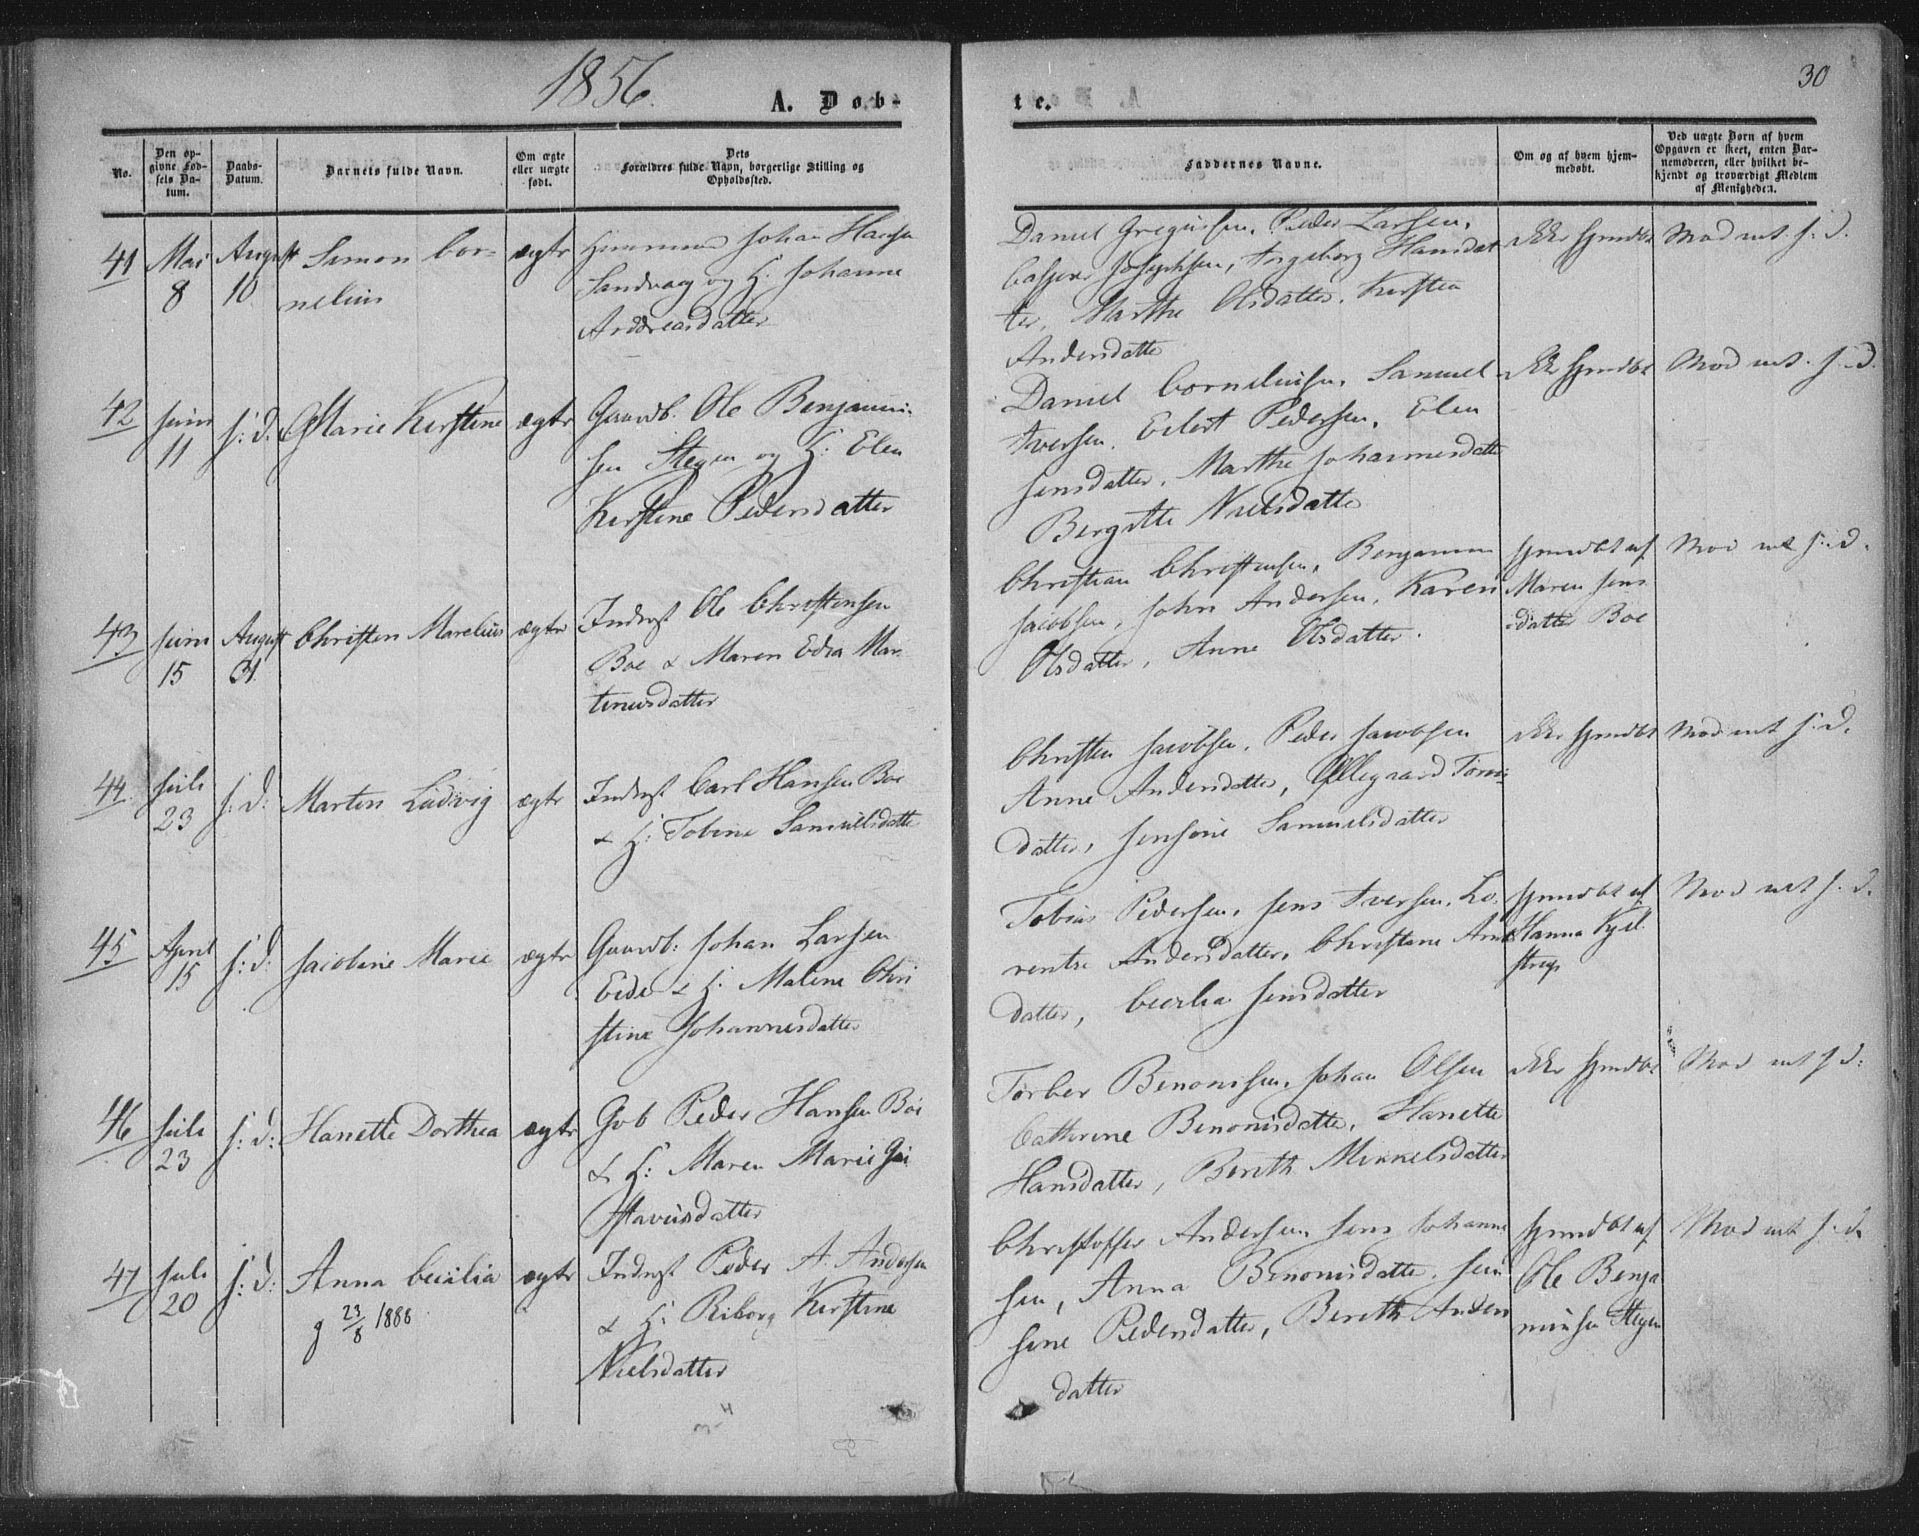 1856.
A. Døb-
te.
30
No.
Den op-
givne Fød-
sels Da-
tum.
Daabs-
Datum.
Barnets fulde Navn.
Om ægte
eller uægte
født.
Dets
Forældres fulde Navn, borgerlige Stilling og
Opholdssted.
Faddernes Navne.
Om og af hvem hjem-
medøbt.
Ved uægte Børn af hvem
Opgaven er skeet, enten Bar-
nemoderen, eller hvilket be-
kjendt og troværdigt Medlem
af Menigheden.
41
Mai
8
August
10
Simon Cor-
nelius
ægte
Johan Hansen
Sandvaag og H: Johanne
Andreasdatter
Daniel Gregussen, Peder Larsen,
Casper Josephsen, Ingeborg Hansdat
ter, Marthe Olsdatter, Kirsten
Andersdatter
Ikke hjmdbt
Mod mt. s. d.
42
Juni
11
s: d:
Marie Kirstine
ægte
Gaardb. Ole Benjamin-
sen Stegen og H: Elen
Kirstine Pedersdatter
Daniel Corneliussen, Samuel
Iversen, Eilert Pedersen, Elen
Jensdatter, Marthe Johannesdatter
Bergitte Nielsdatter
Ikke hjmdbt
Mod mt. s. d.
43
Juni
15
August
31.
Christen Marelius
ægte
Inderst Ole Christensen
Boe & Maren Edea Mar-
tinusdatter
Christian Christensen, Benjamin
Jacobsen, John Andersen, Karen
Olsdatter, Anne Olsdatter.
hjmdbt af
Maren Jens
datter Boe
Mod mt s: d.
44.
Juli
23
s: d:
Martin Ludvig
ægte
Inderst Carl Hansen Boe
& H: Tobine Samuelsdatter
Christen Jacobsen, Peder Jacobsen
Anne Andersdatter, Ollegaard Tømis
datter, Jensine Samuelsdatter
Ikke hjmdbt
Mod mt s: d.
45
April
15
s: d:
Jacobine Marie
ægte
Gaardb: Johan Larsen
Eide & H: Maline Chri
stine Johannesdatter
Tobias Pedersen, Jens Iversen, Lo-
rentse Andersdatter, Christine Arnt
datter, Cecilia Jensdatter
hjmdbt af
Hanna Kjel
strup
Mod mt s. d.
46
Juli
23
s: d:
Hanette Dorthea
ægte
Gvb Peder Hansen Boe
& H: Maren Marie Gu
stavusdatter
Torber Benonisen, Johan Olsen
Cathrine Benonisdatter, Hanette
Hansdatter, Bereth Mikkelsdatter
ikke hjmdbt
Mod mt s d:
47
Juli
20
s: d:
Anna Cecilia
g 23/8 1888
ægte
Inderst Peder A. Andersen
& H: Riborg Kirstine
Nielsdatter
Christopher Andersen, Jens Johanne
sen, Anna Benonisdatter, Jen
sine Pedersdatter, Bereth Anders
datter
hjmdbt af
Ole Benja
minsen Stegen
Mod mt s. d.